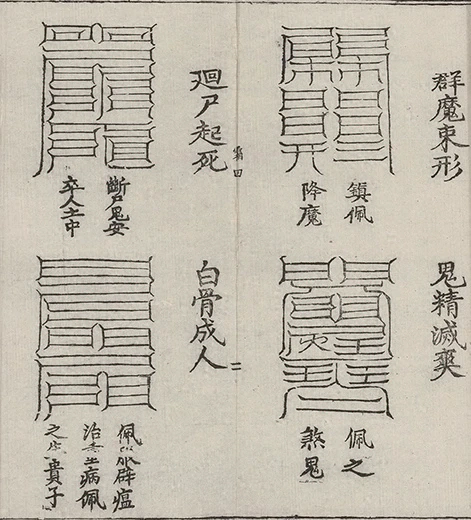 群魔束形
鎮佩
降魔
廻尸起死
斷尸鬼安
卒人土中
鬼精滅爽
佩之
煞鬼
白骨成人
佩辟瘟
治病佩
之貴子